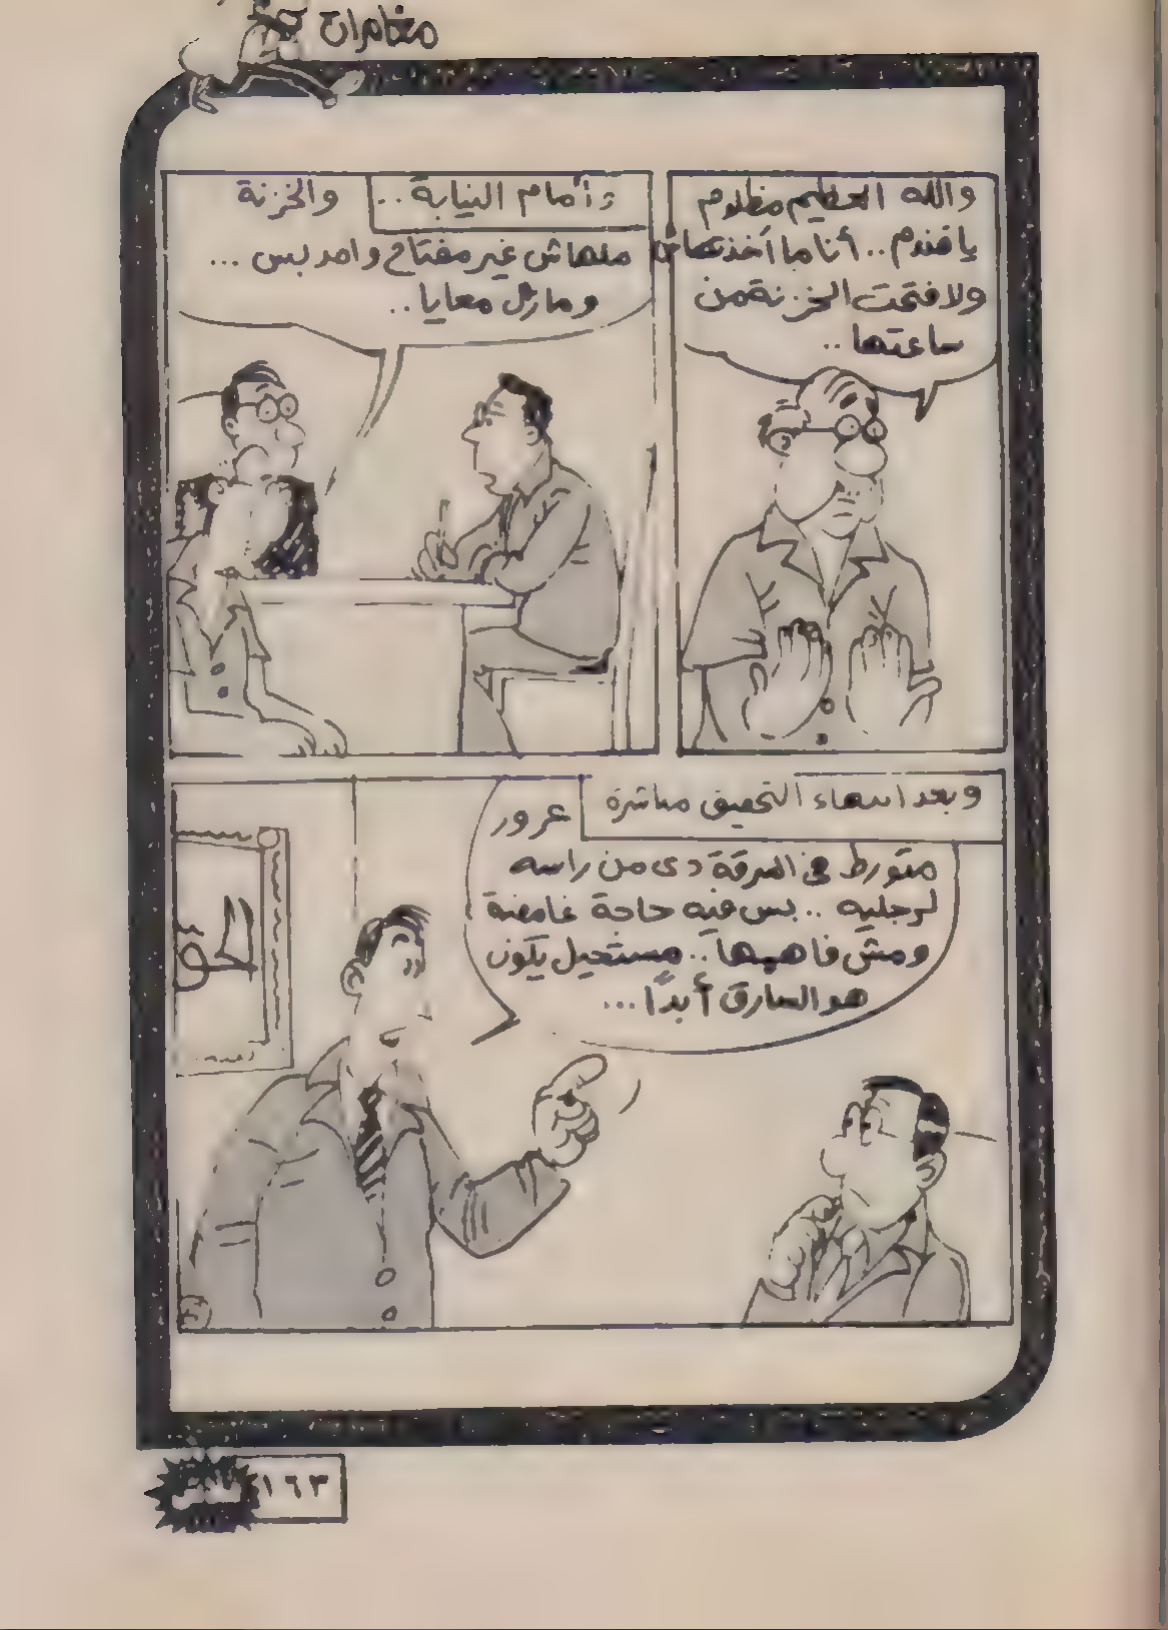 مغامرات
والله العظيم مظلوم
يا فندم.. أنا ما أخذتهاش
ولا فتحت الخزنة من
ساعتها..
وأمام النيابة..
والخزنة
ملهاش غير مفتاح واحد بس ...
ومازال معايا..
وبعد انتهاء التحقيق مباشرة
عرور
متورط في السرقة دى من راسه
لرجليه .. بس فيه حاجة غامضة
ومش فاهمها.. مستحيل يكون
هو السارق أبدًا...
١٦٣